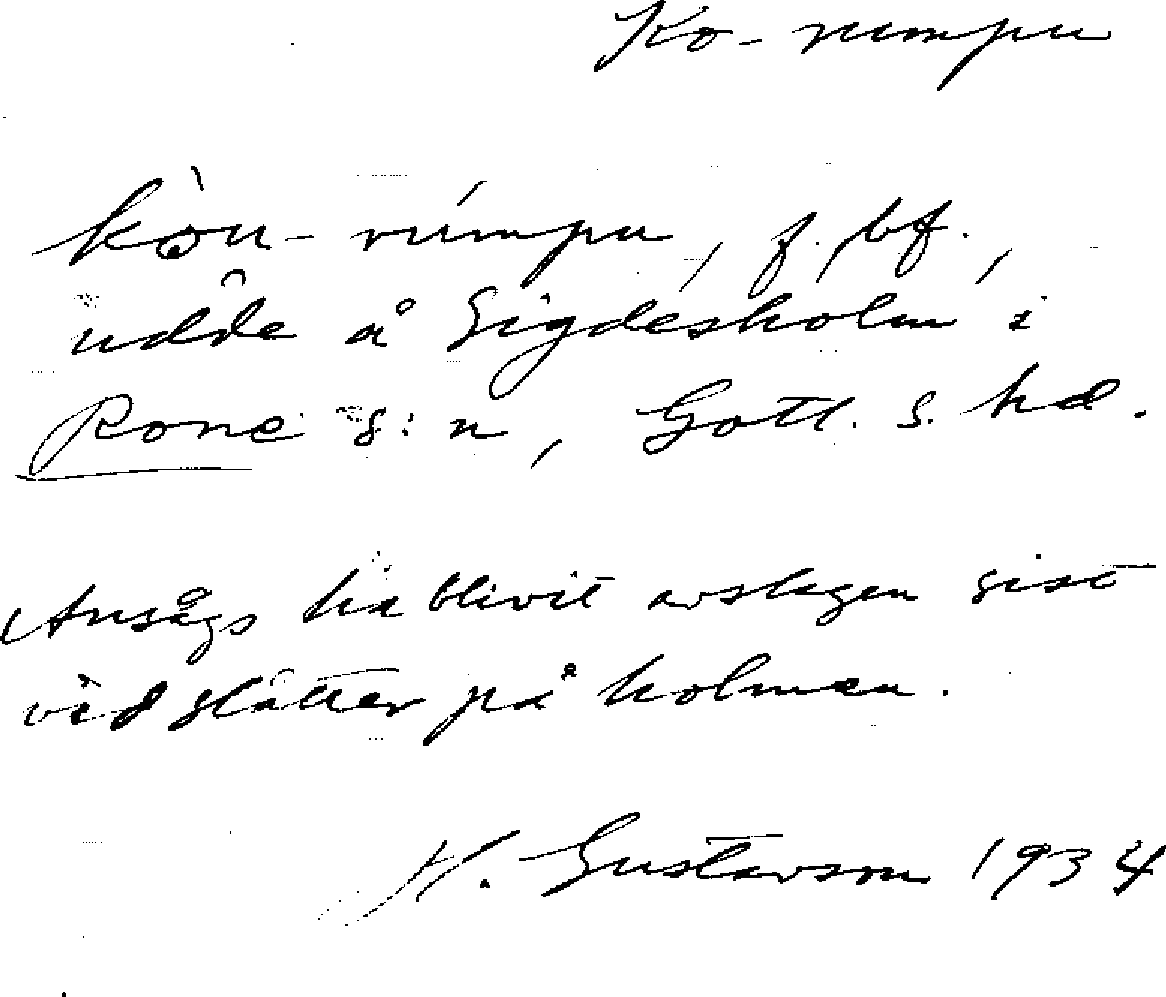 Ko-rumpu
kòu-rúmpu, f. bf.,
udde å Sigdesholm i
Rone s:n, Gotl. s. hd.
Ansågs ha blivit avslagen sist
vid slåtter på holmen.
H. Gustavson 1934